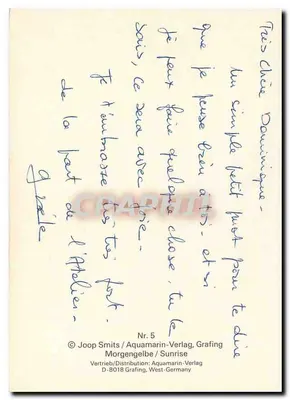 Très Chère Dominique -
Un simple petit mot pour te dire
que je pense bien à toi - et si
je peux faire quelque chose, tu le
sais, ce sera avec joie -
Je t'embrasse très très fort -
de la part de l'Atelier -
Nr. 5
© Joop Smits / Aquamarin-Verlag, Grafing
Morgengelbe / Sunrise
Vertrieb/Distribution: Aquamarin-Verlag
D-8018 Grafing, West-Germany